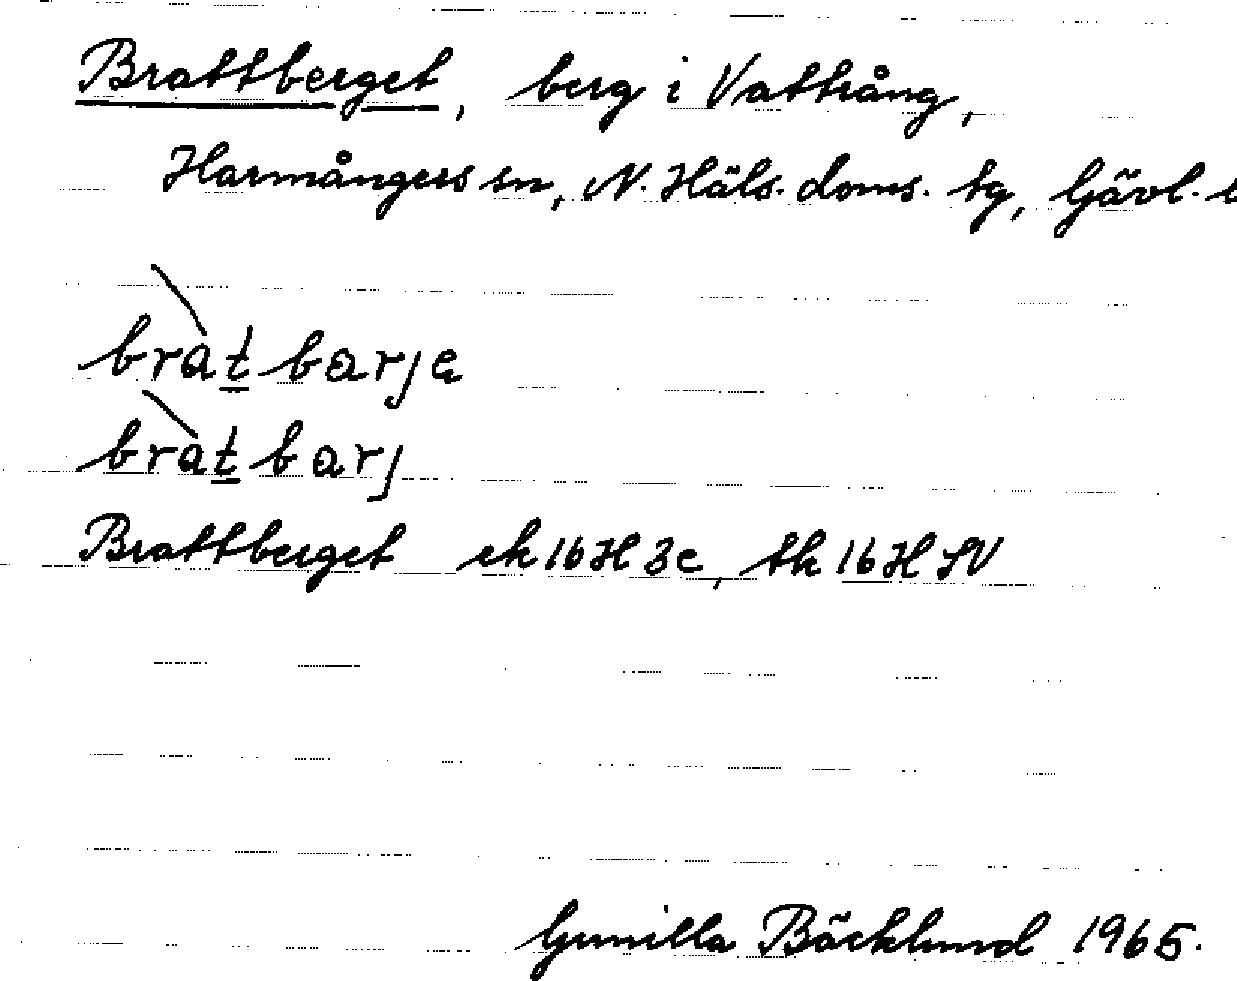 Brattberget, berg i Vattrång,
Harmångers sn, N. Häls. doms. tg, Gävl. l
bràt barje
bràt barj
Brattberget ek 16H 3c, tk 16H SV
Gunilla Bäcklund 1965.